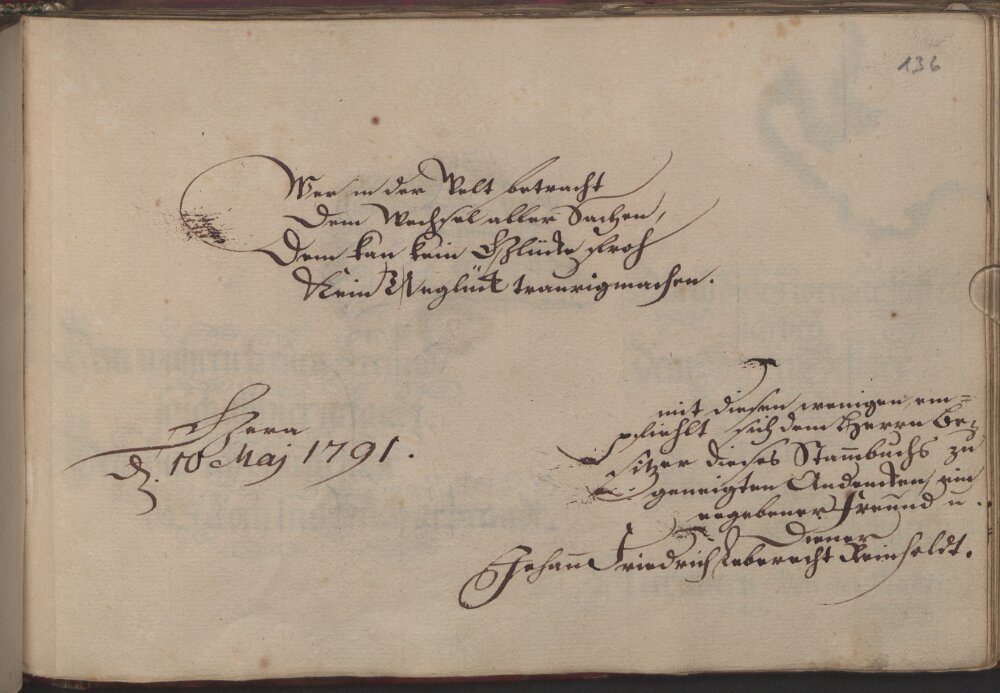 136
Wer in der Welt betracht
Dem Wechsel aller Sachen,
Dem kan kein Glücke froh
Kein Unglück traurig machen.
Gera
d. 10 Maj 1791.
mit diesen wenigen em=
pfiehlt sich dem Herrn Be=
sitzer dieses Stammbuchs zu
geneigten Andencken, ein
ergebener Freund u.
Diener
Johann Friedrich Leberecht Reinholdt.